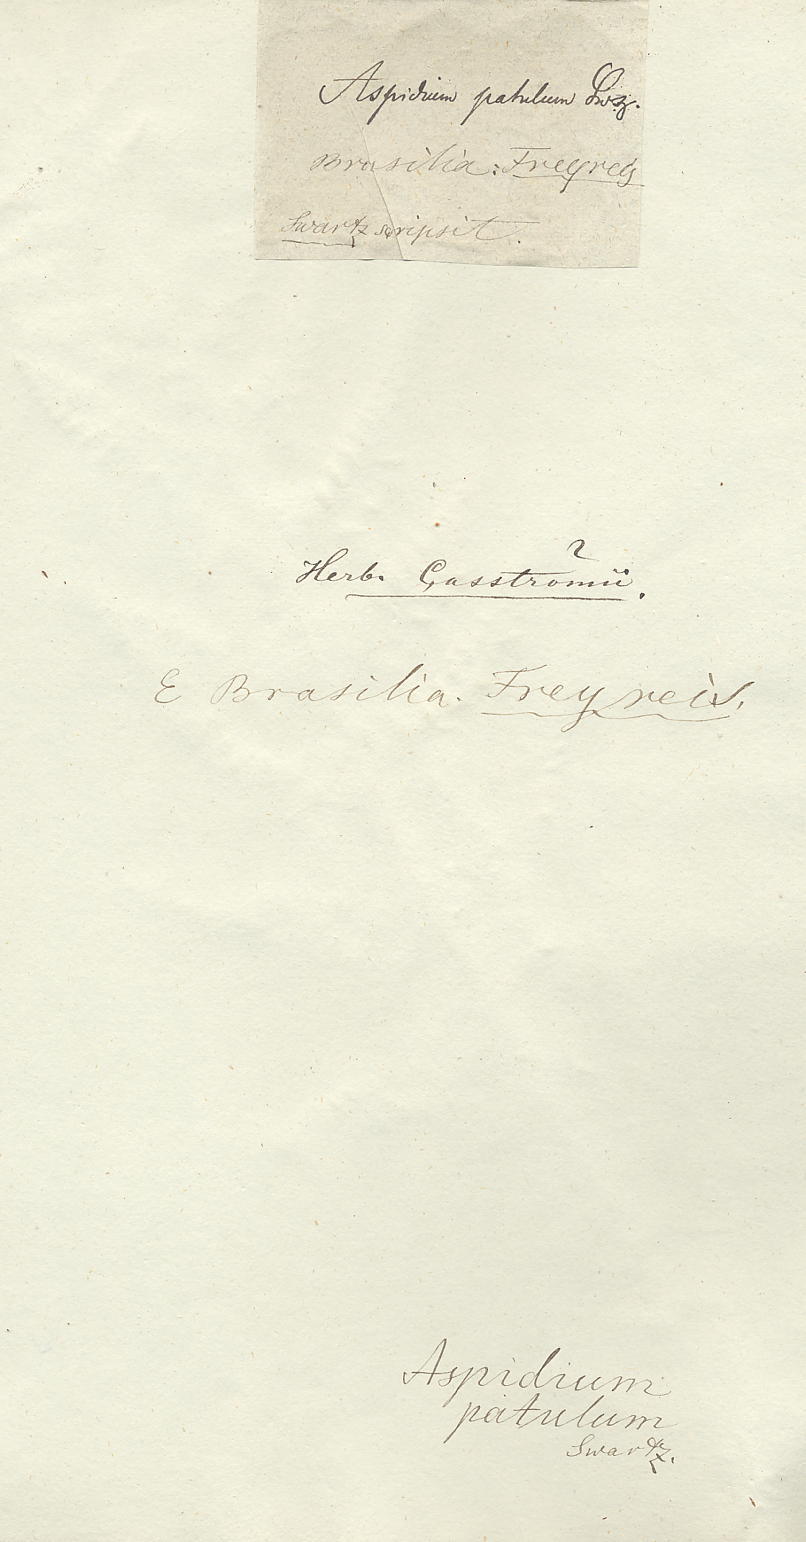 Aspidium patulum Swz.
Brasilia: Freyreis
Swartz scripsit.
?
Herb. Casströmii.
E Brasilia. Freyreis.
Aspidium
patulum
Swartz.